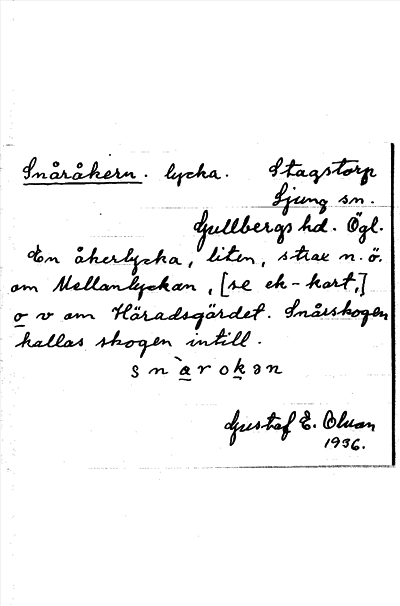 Snåråkern. lycka. Stagstorp
Ljung sn.
Gullbergs hd. Ögl.
En åkerlycka, liten, strax n. ö.
om Mellanlyckan, [se ek-kart,]
o v om Häradsgärdet. Snårskogen
kallas skogen intill.
s n ̀a r o k ə n
Gustaf E. Olsson
1936.